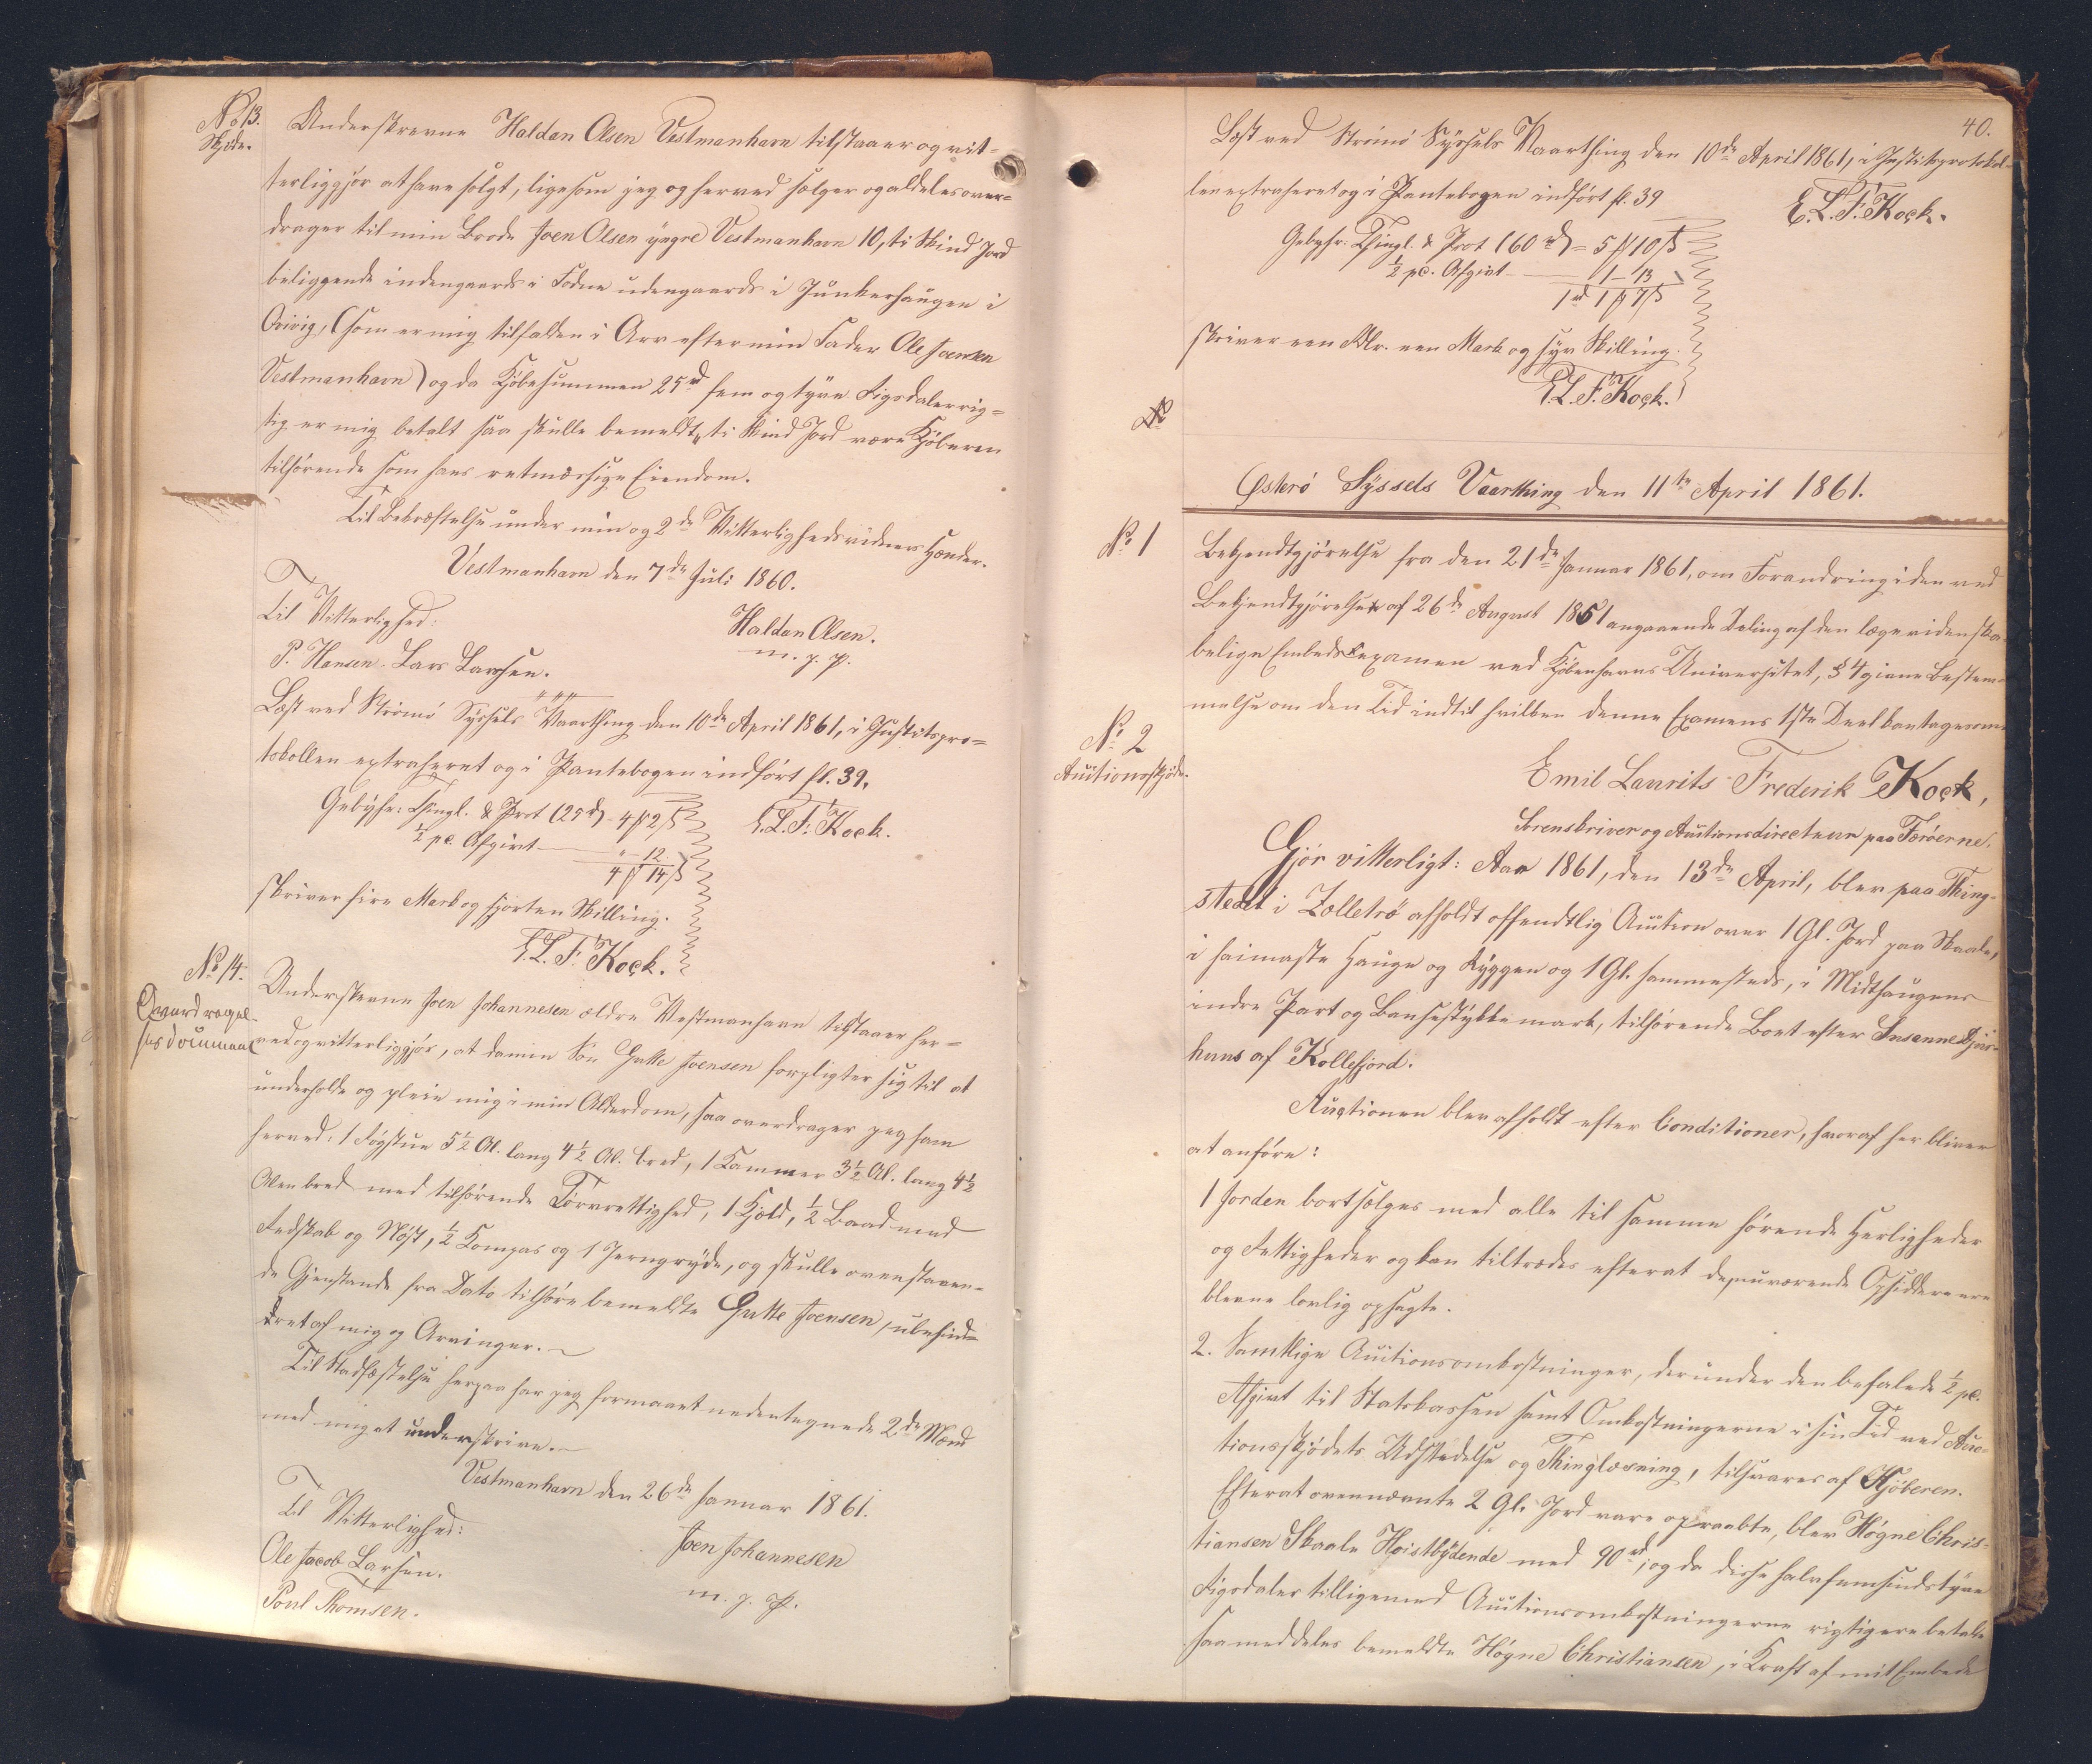 No 13.
Skjøde.
Underskrevne Haldan Olsen Vestmanhavn tilstaaer og vit=
terliggjør at have solgt, ligesom jeg og herved sælger og aldeles over=
drager til min Brode Joen Olsen yngre Vestmanhavn 10, ti Skind Jord
beliggende indengaards i Fodne udengaards i Junkerhaugen i
(som er mig tilfalden i Arv efter min Fader Ole Joensen
Vestmanhavn) og da Kjøbesummen 25 rd fem og tyve Rigsdaler rig=
tig er mig betalt saa skulle bemeldte ti Skind Jord være Kjøberen
tilhørende som hans retmæssige Eiendom.
Til Bekræftelse under min og 2de Vitterlighedsvidners Hænder.
Vestmanhavn den 7de Juli 1860.
Til Vitterlighed:
Haldan Olsen.
P. Hansen. Lars Larsen.
m. f. P.
Læst ved Strømø Syssels Vaarthing den 10de April 1861, i Justitspro=
tokollen extraheret og i Pantebogen indført fl. 39.
Gebyhr: Thingl. & Prot (25 rd) - 4 ₰ 2 ß
E. L. F. Kock.
½ pC. Afgivt — " - 12
4 ₰ 14 ß
skriver fire Mark og fjorten Skilling.
E. L. F. Kock.
No 14.
Overdragel-
sesdocument
Underskrevne Joen Johannesen ældre Vestmanhavn tilstaaer her=
ved og vitterliggjør, at da min Søn Gutte Joensen forpligter sig til at
underholde og pleie mig i min Alderdom, saa overdrager jeg ham
herved: 1 Røgstue 5½ Al. lang 4½ Al. bred, 1 Kammer 3½ Al. lang 4½
Alen bred med tilhørende Tørverettighed, 1 Kjold, ½ Baad med
Redskab og Nøst, ½ Kompas og 1 Jerngryde, og skulle ovenstaaen-
de Gjenstande fra Dato tilhøre bemeldte Gutte Joensen, ubehind=
dret af mig og Arvinger.
Til Stadfæstelse herpaa har jeg formaaet nedentegnede 2de Mænd
med mig at underskrive.
Vestmanhavn den 26de Januar 1861.
Til Vitterlighed:
Joen Johannesen
Ole Jacob Larsen.
m. f. P.
Poul Thomsen.
40.
Læst ved Strømø Syssels Vaarthing den 10de April 1861, i Justitsprotokol-
len extraheret og i Pantebogen indført fl. 39
E. L. F. Kock.
Gebyhr: Thingl. & Prot (60 rd) = 5 ₰ 10 ß
½ pC. Afgivt — 1 - 13
1 rd 1 ₰ 7 ß
skriver een Rdlr. een Mark og syv Skilling.
E. L. F. Kock.
No
Østerø Syssels Vaarthing den 11te April 1861.
No 1
Bekjendtgjørelse fra den 21de Januar 1861, om Forandring i den ved
Bekjendtgjørelse af 26de August 1851 angaaende Deling af den lægevidenska-
belige Embedsexamen ved Kjøbenhavns Universitet, § 4 givne Bestem-
melse om den Tid indtil hvilken denne Examens 1ste Deel kan tages om.
No 2
Auctionsskjøde.
Emil Laurits Frederik Kock,
Sorenskriver og Auctionsdirecteur paa Færøerne,
Gjør vitterligt: Aar 1861, den 13de April, blev paa Thing-
stedet i Zelletrø afholdt offendtlig Auction over 1 Gl. Jord paa Skaale,
i heimaste Hauge og Ryggen og 1 Gl. sammesteds, i Midthaugens
indre Part og Banhestykkemark, tilhørende Boet efter Susanne Djur-
huus af Kollefjord.
Auctionen blev afholdt efter Conditioner, hvoraf her bliver
at anføre:
1 Jorden bortsælges med alle til samme hørende Herligheder
og Rettigheder og kan tiltrædes efterat de nuværende Opsiddere ere
blevne lovlig opsagte.
2. Samtlige Auctionsomkostninger, derunder den befalede ½ pC.
Afgivt til Statskassen samt Omkostningerne i sin Tid ved Auc-
tionsskjødets Udstedelse og Thinglæsning, tilsvares af Kjøberen.
Efterat ovennævnte 2 Gl. Jord vare opraabte, blev Høgne Chris-
tiansen Skaale Høistbydende med 90 rd, og da disse halvfemsindstyve
Rigsdaler tilligemed Auctionsomkostningerne rigtig ere betalte
saa meddeles bemeldte Høgne Christiansen, i Kraft af mit Embede